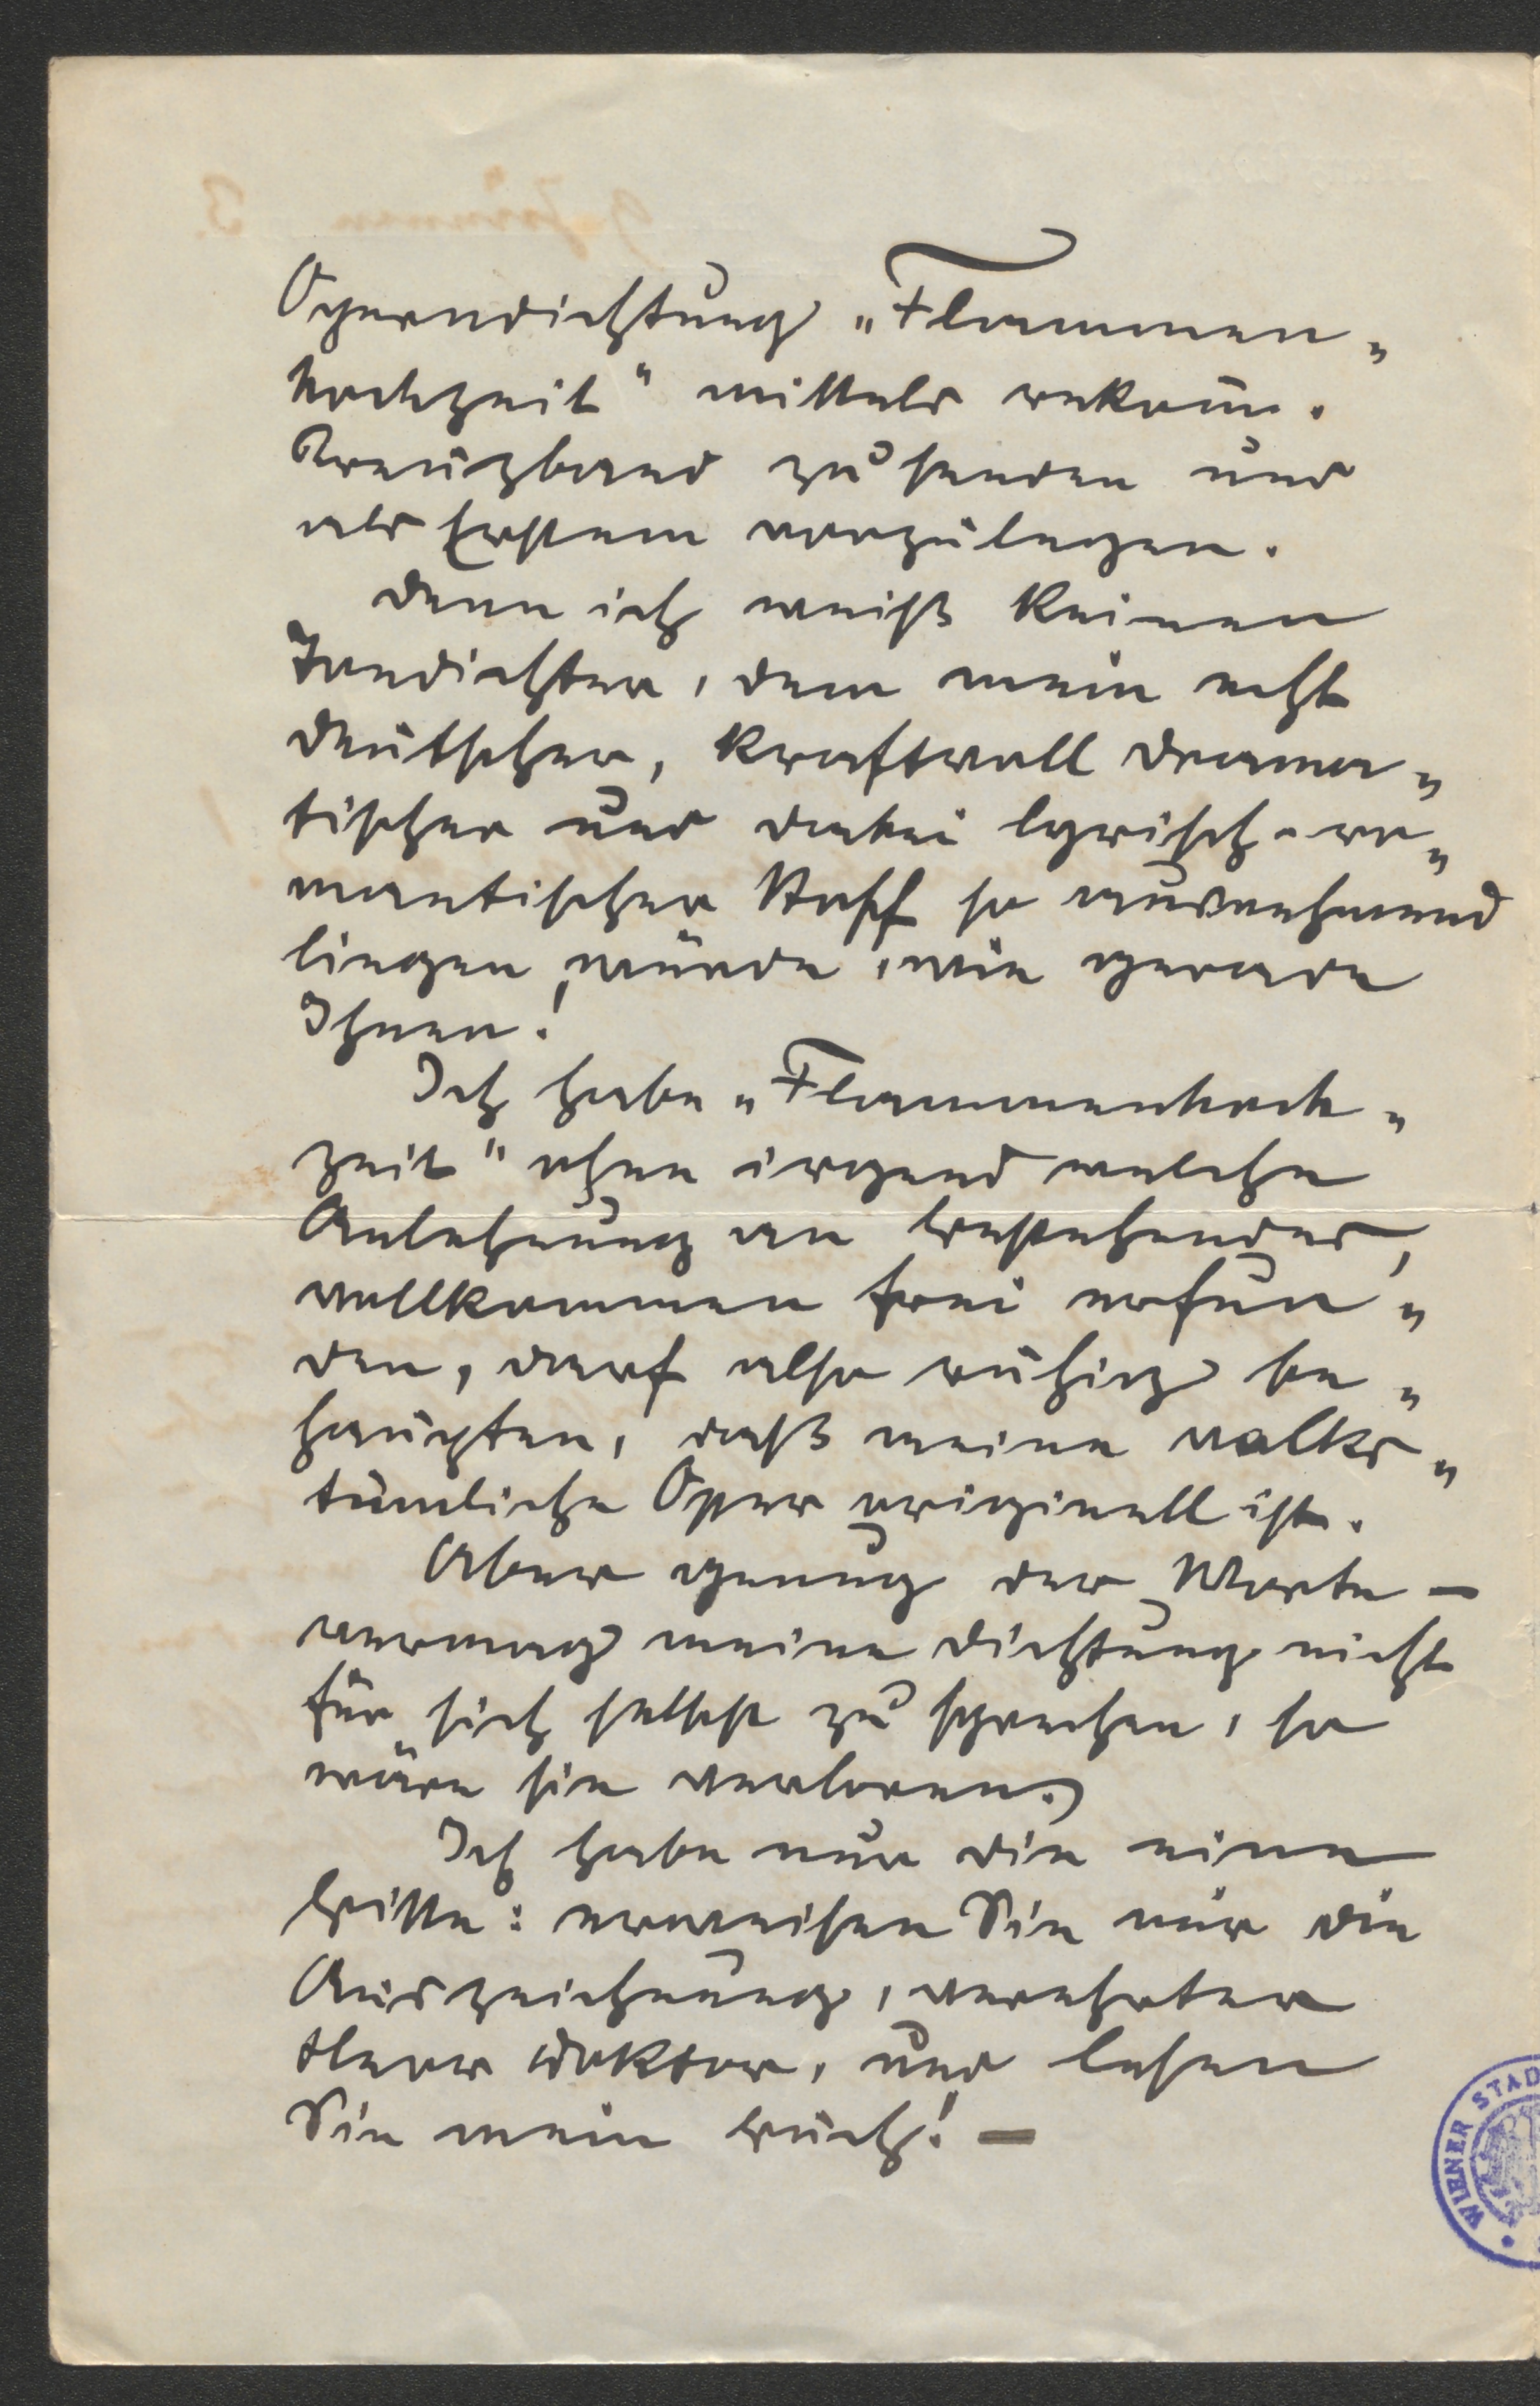 Operndichtung „Flammen„
hochzeit" mittels rekom.
Kreuzband zu senden und
als Erstem vorzulegen.
Denn ich weiß keinen
Tondichter, dem mein echt
deutscher, kraftvoll drama„
tischer und dabei lyrisch-ro„
mantischer Stoff so ausnehmend
liegen würde, wie gerade
Ihnen!
Ich habe „Flammenhoch„
zeit" ohne irgend welche
Anlehnung an bestehendes,
vollkommen frei erfun„
den, darf also ruhig be„
haupten, daß meine volks„
tümliche Oper originell ist.
Aber genug der Worte —
vermag meine Dichtung nicht
für sich selbst zu sprechen, so
wäre sie verloren.
Ich habe nur die eine
Bitte: erweisen Sie mir die
Auszeichnung, verehrter
Herr Doktor, und lesen
Sie mein Buch! —
WIENER STAD